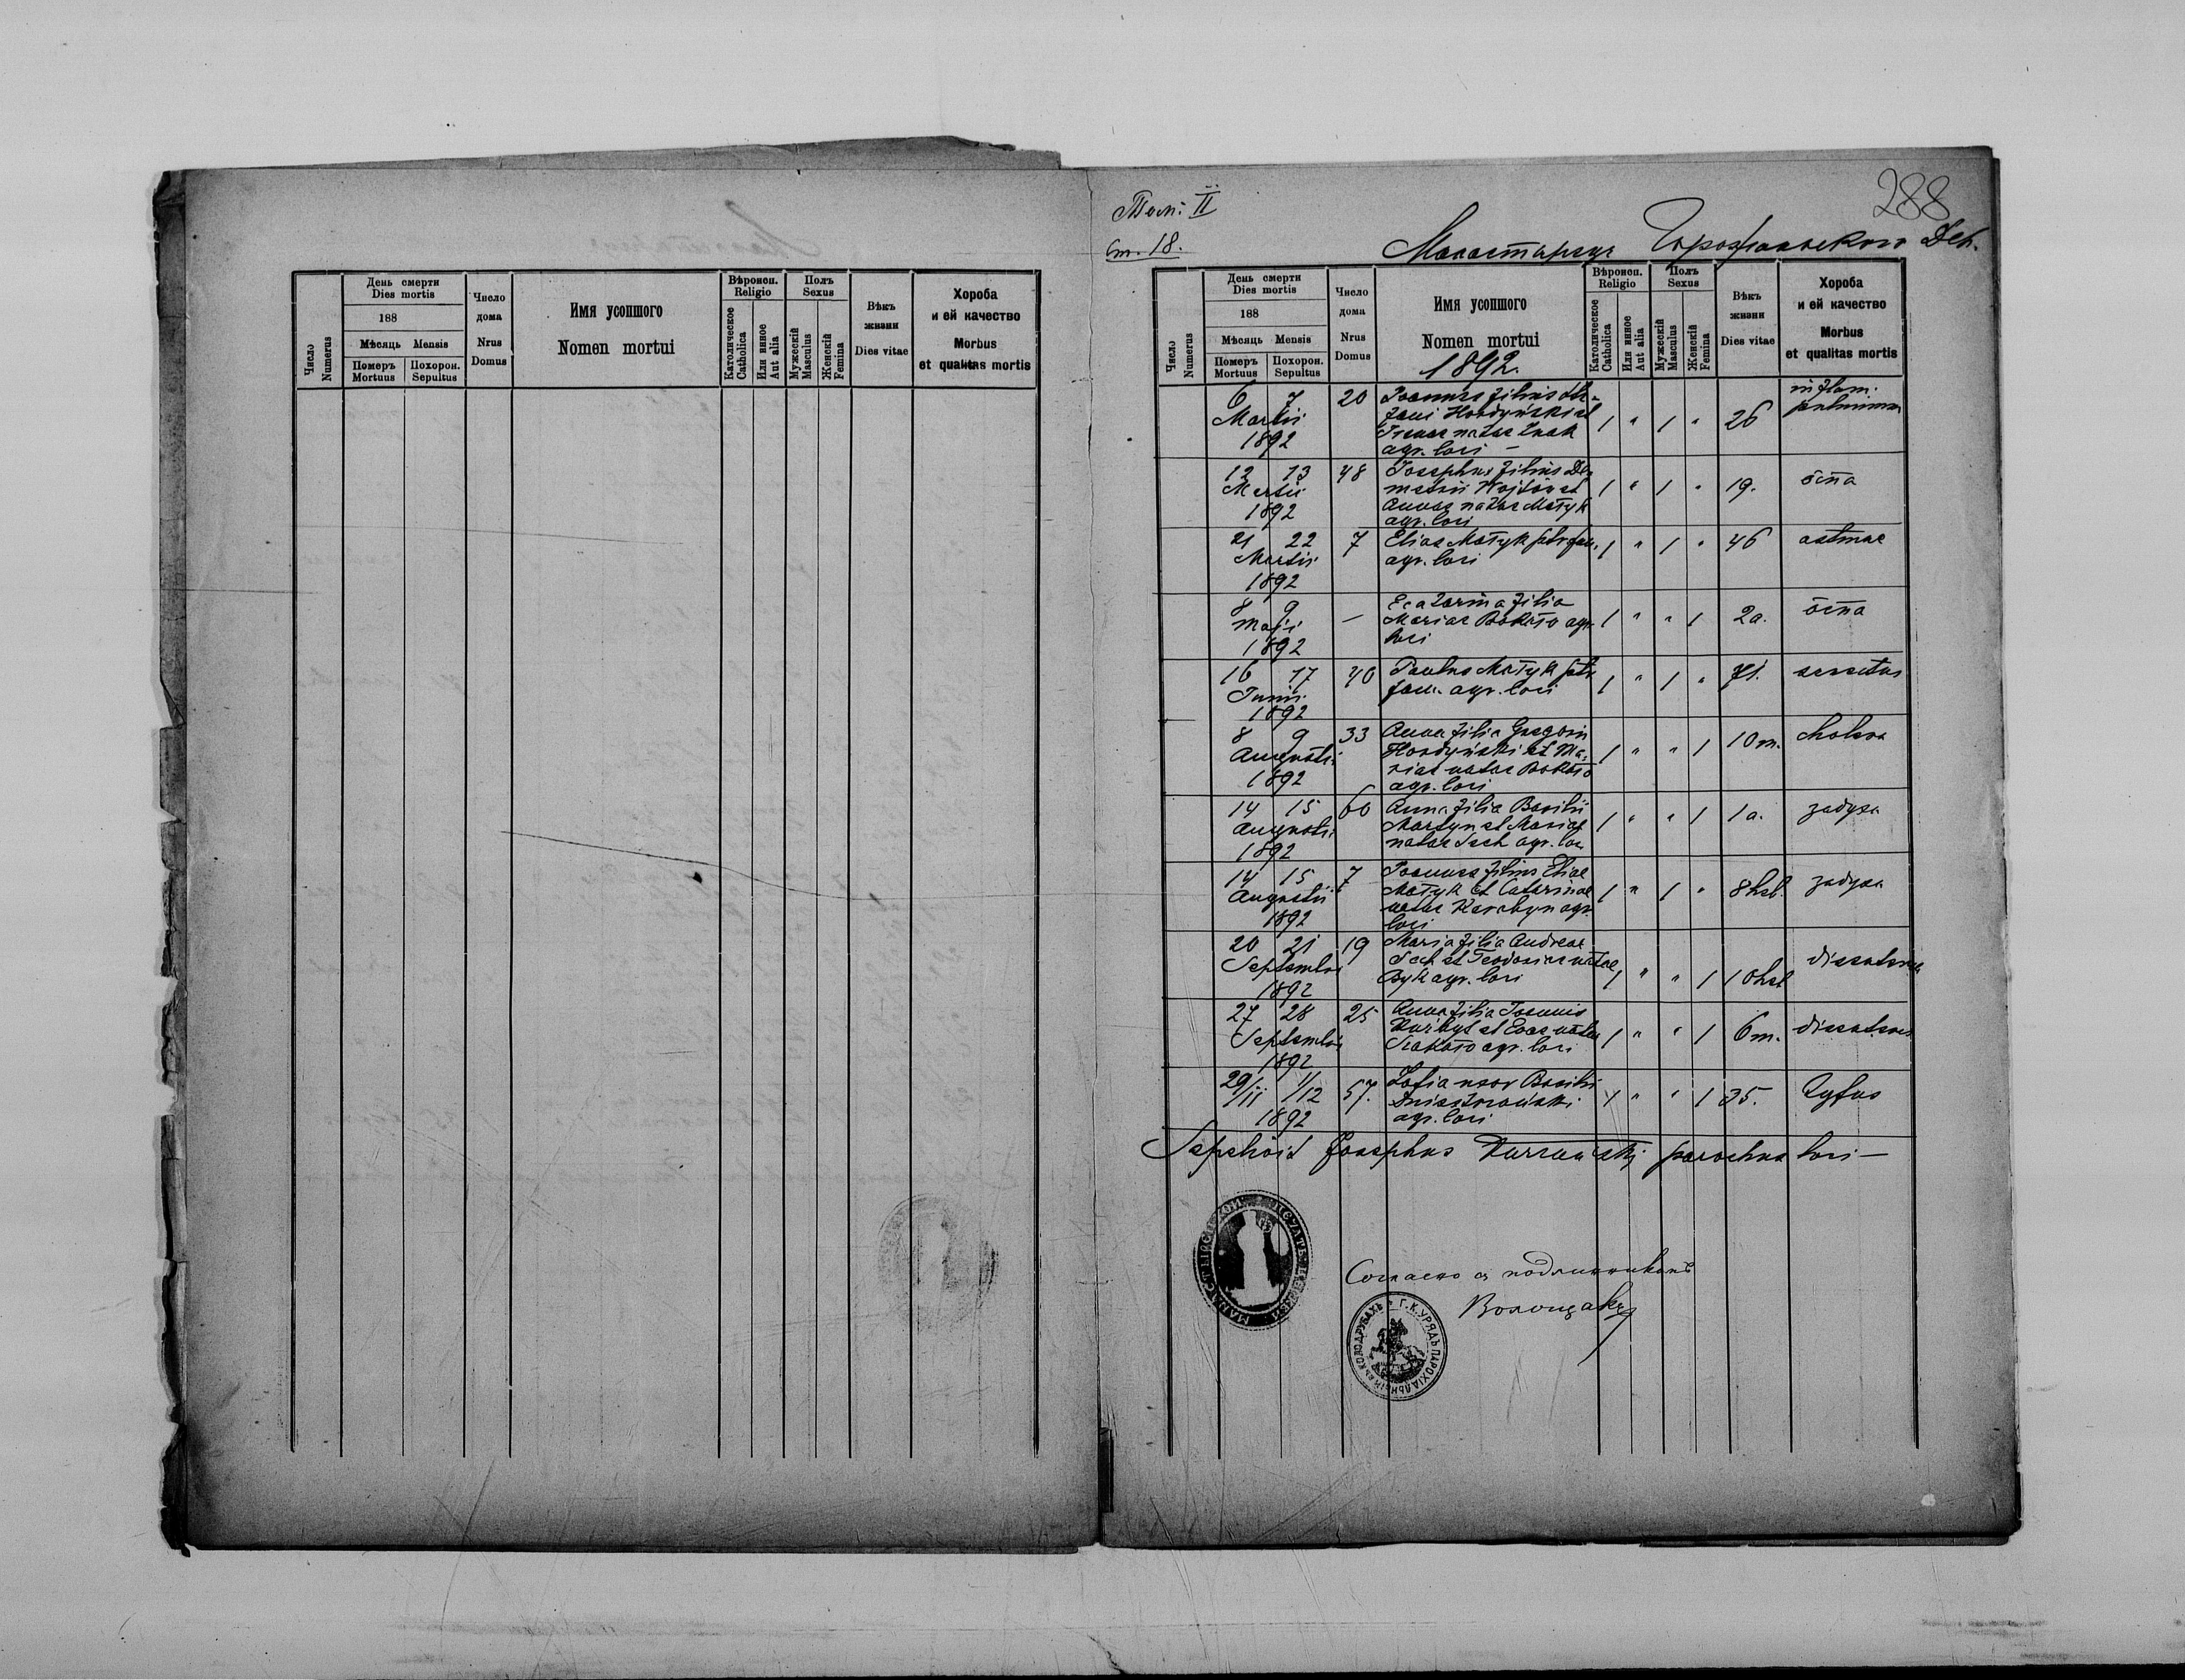 288
Том: II
Ст. 18.
Монастырецъ Горожанского Dek.
Число Numerus
День смерти
Dies mortis
188
Мѣсяць Mensis
Померъ Mortuus
Похорон. Sepultus
Число дома
Nrus Domus
Имя усопшого
Nomen mortui
Вѣроисп.
Religio
Католическое Catholica
Или иное Aut alia
Полъ
Sexus
Мужескій Masculus
Женскій Femina
Вѣкъ жизни
Dies vitae
Хороба
и ей качество
Morbus
et qualitas mortis
Число Numerus
День смерти
Dies mortis
188
Мѣсяць Mensis
Померъ Mortuus
Похорон. Sepultus
Число дома
Nrus Domus
Имя усопшого
Nomen mortui
1892.
Вѣроисп.
Religio
Католическое Catholica
Или иное Aut alia
Полъ
Sexus
Мужескій Masculus
Женскій Femina
Вѣкъ жизни
Dies vitae
Хороба
и ей качество
Morbus
et qualitas mortis
6 7 20 Joannes filius Ste- inflam.
Martii fani Hordyński et 1 " 1 " 26 pulmonum
1892 natae
agr. loci –
12 13 48 Josephus filius De-
Martii metrii Wojtów et 1 " 1 " 19. ospa
1892 Annae natae Matyk
agr. loci
21 22 7 Elias Matyk ptrfam. 1 " 1 " 46 astmae
Martii agr. loci
1892
8 9 – Ecatarina filia
Maji Mariae agr. 1 " " 1 2a. ospa
1892 loci
16 17 40 Paulus Matyk ptr 1 " 1 " 71.
Junii fam. agr. loci
1892
8 9 33 Anna filia Gregorii
Augusti Hordyński et Ma- 1 " " 1 10 m. cholera
1892 riae natae
agr. loci
14 15 60 Anna filia Basilii
Augusti Martyn et Mariae 1 " " 1 1a. задуха
1892 natae agr. loci
14 15 7 Joannes filius Eliae
Augustii Matyk et Catarinae 1 " 1 " 8 hbd. задуха
1892 natae agr.
loci
20 21 19 Maria filia Andreae
Septembri et Teodosiae natae 1 " " 1 10 hbd
1892 agr. loci
27 28 25 Anna filia Joannis
Septembri et Evae natae 1 " " 1 6 m.
1892 agr. loci
29/11 1/12 57. Zofia uxor Basilii
1 " " 1 35. tyfus
1892 agr. loci
Sepelivit Josephus parochus loci –
Согласно съ подлинникомъ
Волощакъ
Г.К. УРЯДЪ ПАРОХІАЛЬНЫЙ въ КОЛОДРУБАХЪ